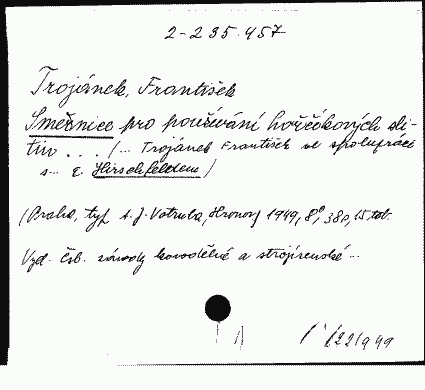 2-235.457
Trojánek, František
Směrnice pro používání hořčíkových sli-
tin ... /... Trojánek František ve spolupráci
s... E. Hirschfeldem/
/Praha, typ. A. J. Votruba, Hronov/ 1949, 8°, 38p, 15 tab.
Vyd. Čsl. závody kovodělné a strojírenské...